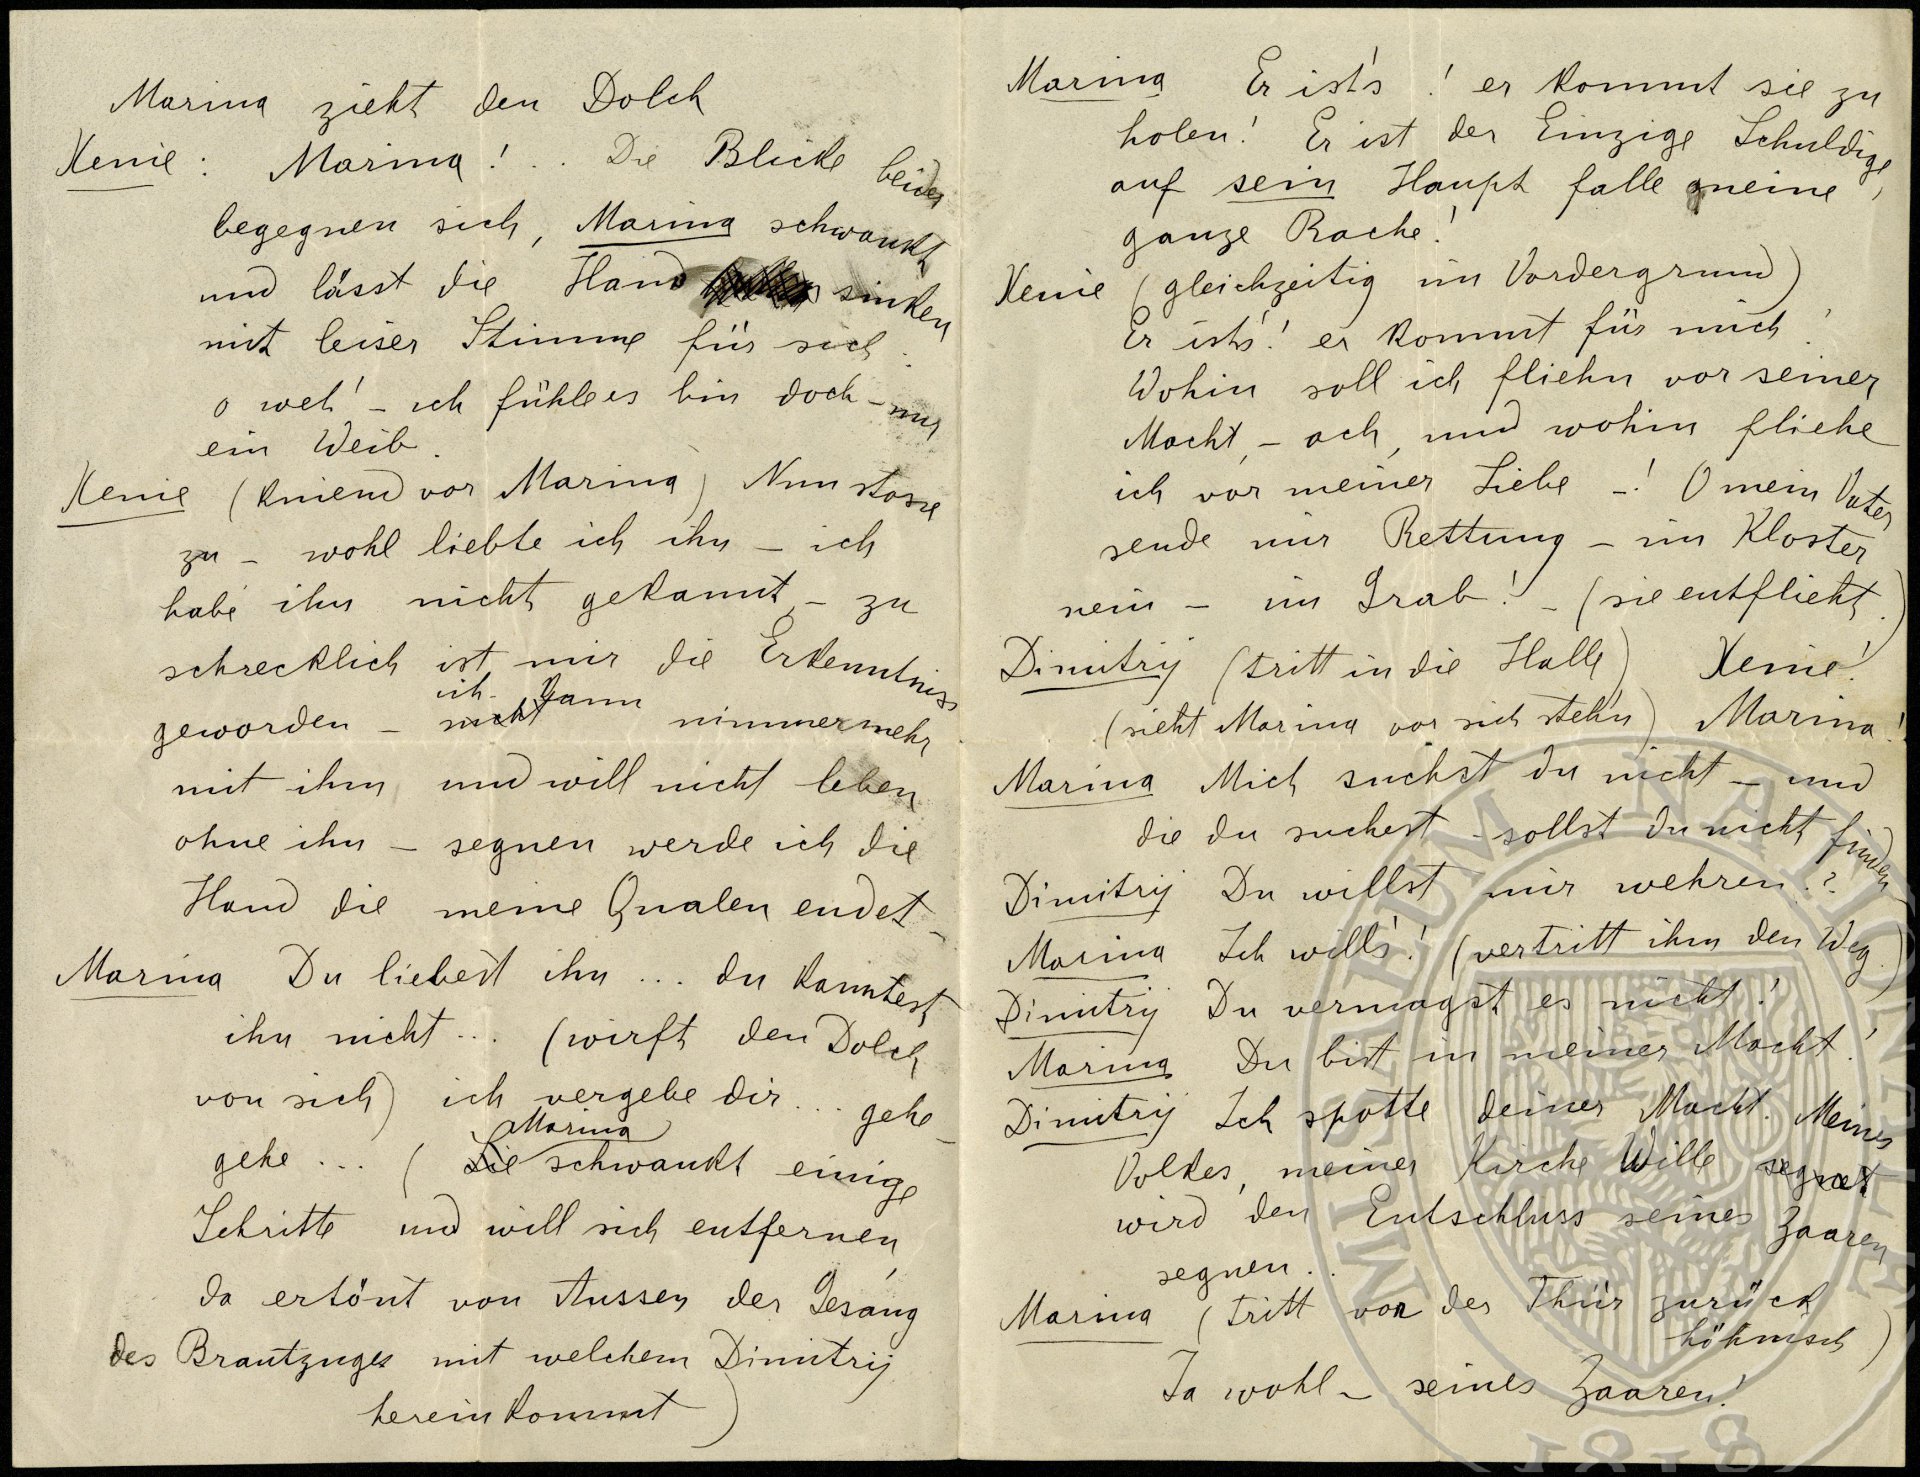 Marina zieht den Dolch
Xenie: Marina! .. Die Blicke beider
begegnen sich, Marina schwankt
und lässt die Hand sinken
mit leiser Stimme für sich.
o weh! – ich fühle es bin doch – nur
ein Weib.
Xenie (knieend vor Marina) Nun stosse
zu – wohl liebte ich ihn – ich
habe ihn nicht gekannt – zu
schrecklich ist mir die Erkenntniss
geworden – ich kann nimmermehr
mit ihm und will nicht leben
ohne ihn – segnen werde ich die
Hand die meine Qualen endet –
Marina Du liebest ihn ... du kanntest
ihn nicht ... (wirft den Dolch
von sich) ich vergebe dir ... gehe –
gehe ... ( Sie Marina schwankt einige
Schritte und will sich entfernen,
da ertönt von Aussen der Gesang
des Brautzuges mit welchem Dimitrij
hereinkommt )
Marina Er ist's! er kommt sie zu
holen! Er ist der Einzige Schuldige,
auf sein Haupt falle meine
ganze Rache!
Xenie (gleichzeitig im Vordergrund)
Er ists! er kommt für mich!
Wohin soll ich fliehn vor seiner
Macht, – ach, und wohin fliehe
ich vor meiner Liebe –! O mein Vater
sende mir Rettung – im Kloster
nein – im Grab! – (sie entflieht.)
Dimitrij (tritt in die Halle) Xenie!
(sieht Marina vor sich steh'n) Marina!
Marina Mich suchst du nicht – und
die du suchest – sollst du nicht finden
Dimitrij Du willst mir wehren?
Marina Ich will's! (vertritt ihm den Weg.)
Dimitrij Du vermagst es nicht!
Marina Du bist in meiner Macht!
Dimitrij Ich spotte deiner Macht. Meines
Volkes, meiner Kirche Wille segnet
wird den Entschluss seines Zaaren
segnen ..
Marina (tritt von der Thür zurück
höhnisch)
Ja wohl – seines Zaaren!
MUSEUM NATIONALE
1818